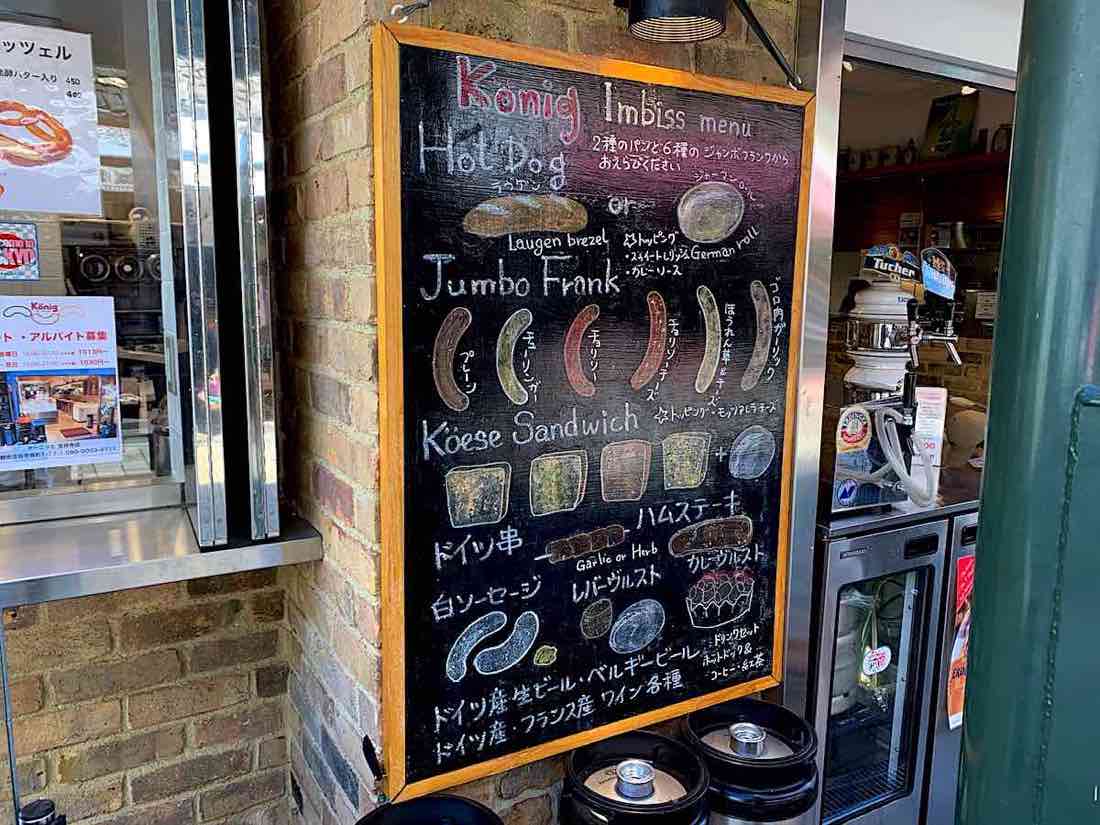 ッツェル
バター入り 450
König
ト・アルバイト募集
König Imbiss menu
Hot Dog
2種のパンと6種のジャンボフランクから
おえらびください
ラウゲン
or
Laugen brezel
German roll
☆トッピング
・スイートレリッシュ
・カレーソース
Jumbo Frank
プレーン
チューリンガー
チョリソー
チョリソーチーズ
ほうれん草とチーズ
ゴロ肉ガーリック
Käese Sandwich
☆トッピング・モッツァレラチーズ
+
ドイツ串
Garlic or Herb
ハムステーキ
白ソーセージ
レバーヴルスト
カレーヴルスト
ドリンクセット
ホットドック&
コーヒー・紅茶
ドイツ産生ビール・ベルギービール
ドイツ産・フランス産ワイン各種
Tucher